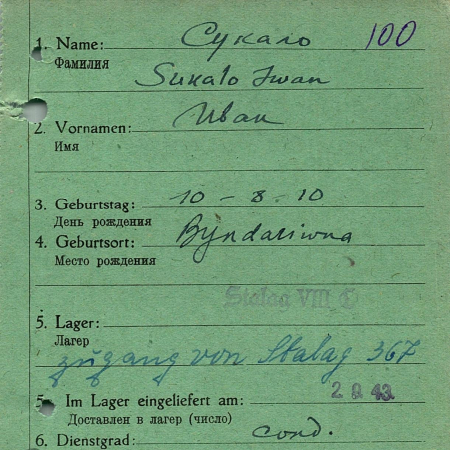 1. Name: Сукало 100
Фамилия
Sukalo Iwan
2. Vornamen: Иван
Имя
3. Geburtstag: 10 - 8 - 10
День рождения
4. Geburtsort:
Место рождения
Stalag VIII C
5. Lager:
Лагер
zugang von Stalag 367
5a Im Lager eingeliefert am: 2 9. 43.
Доставлен в лагер (число)
6. Dienstgrad: